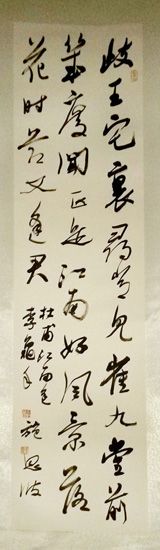 歧王宅裏尋常見崔九堂前
幾度聞正是江南好風景落
花時節又逢君
杜甫江南逢
李龜年
施 波